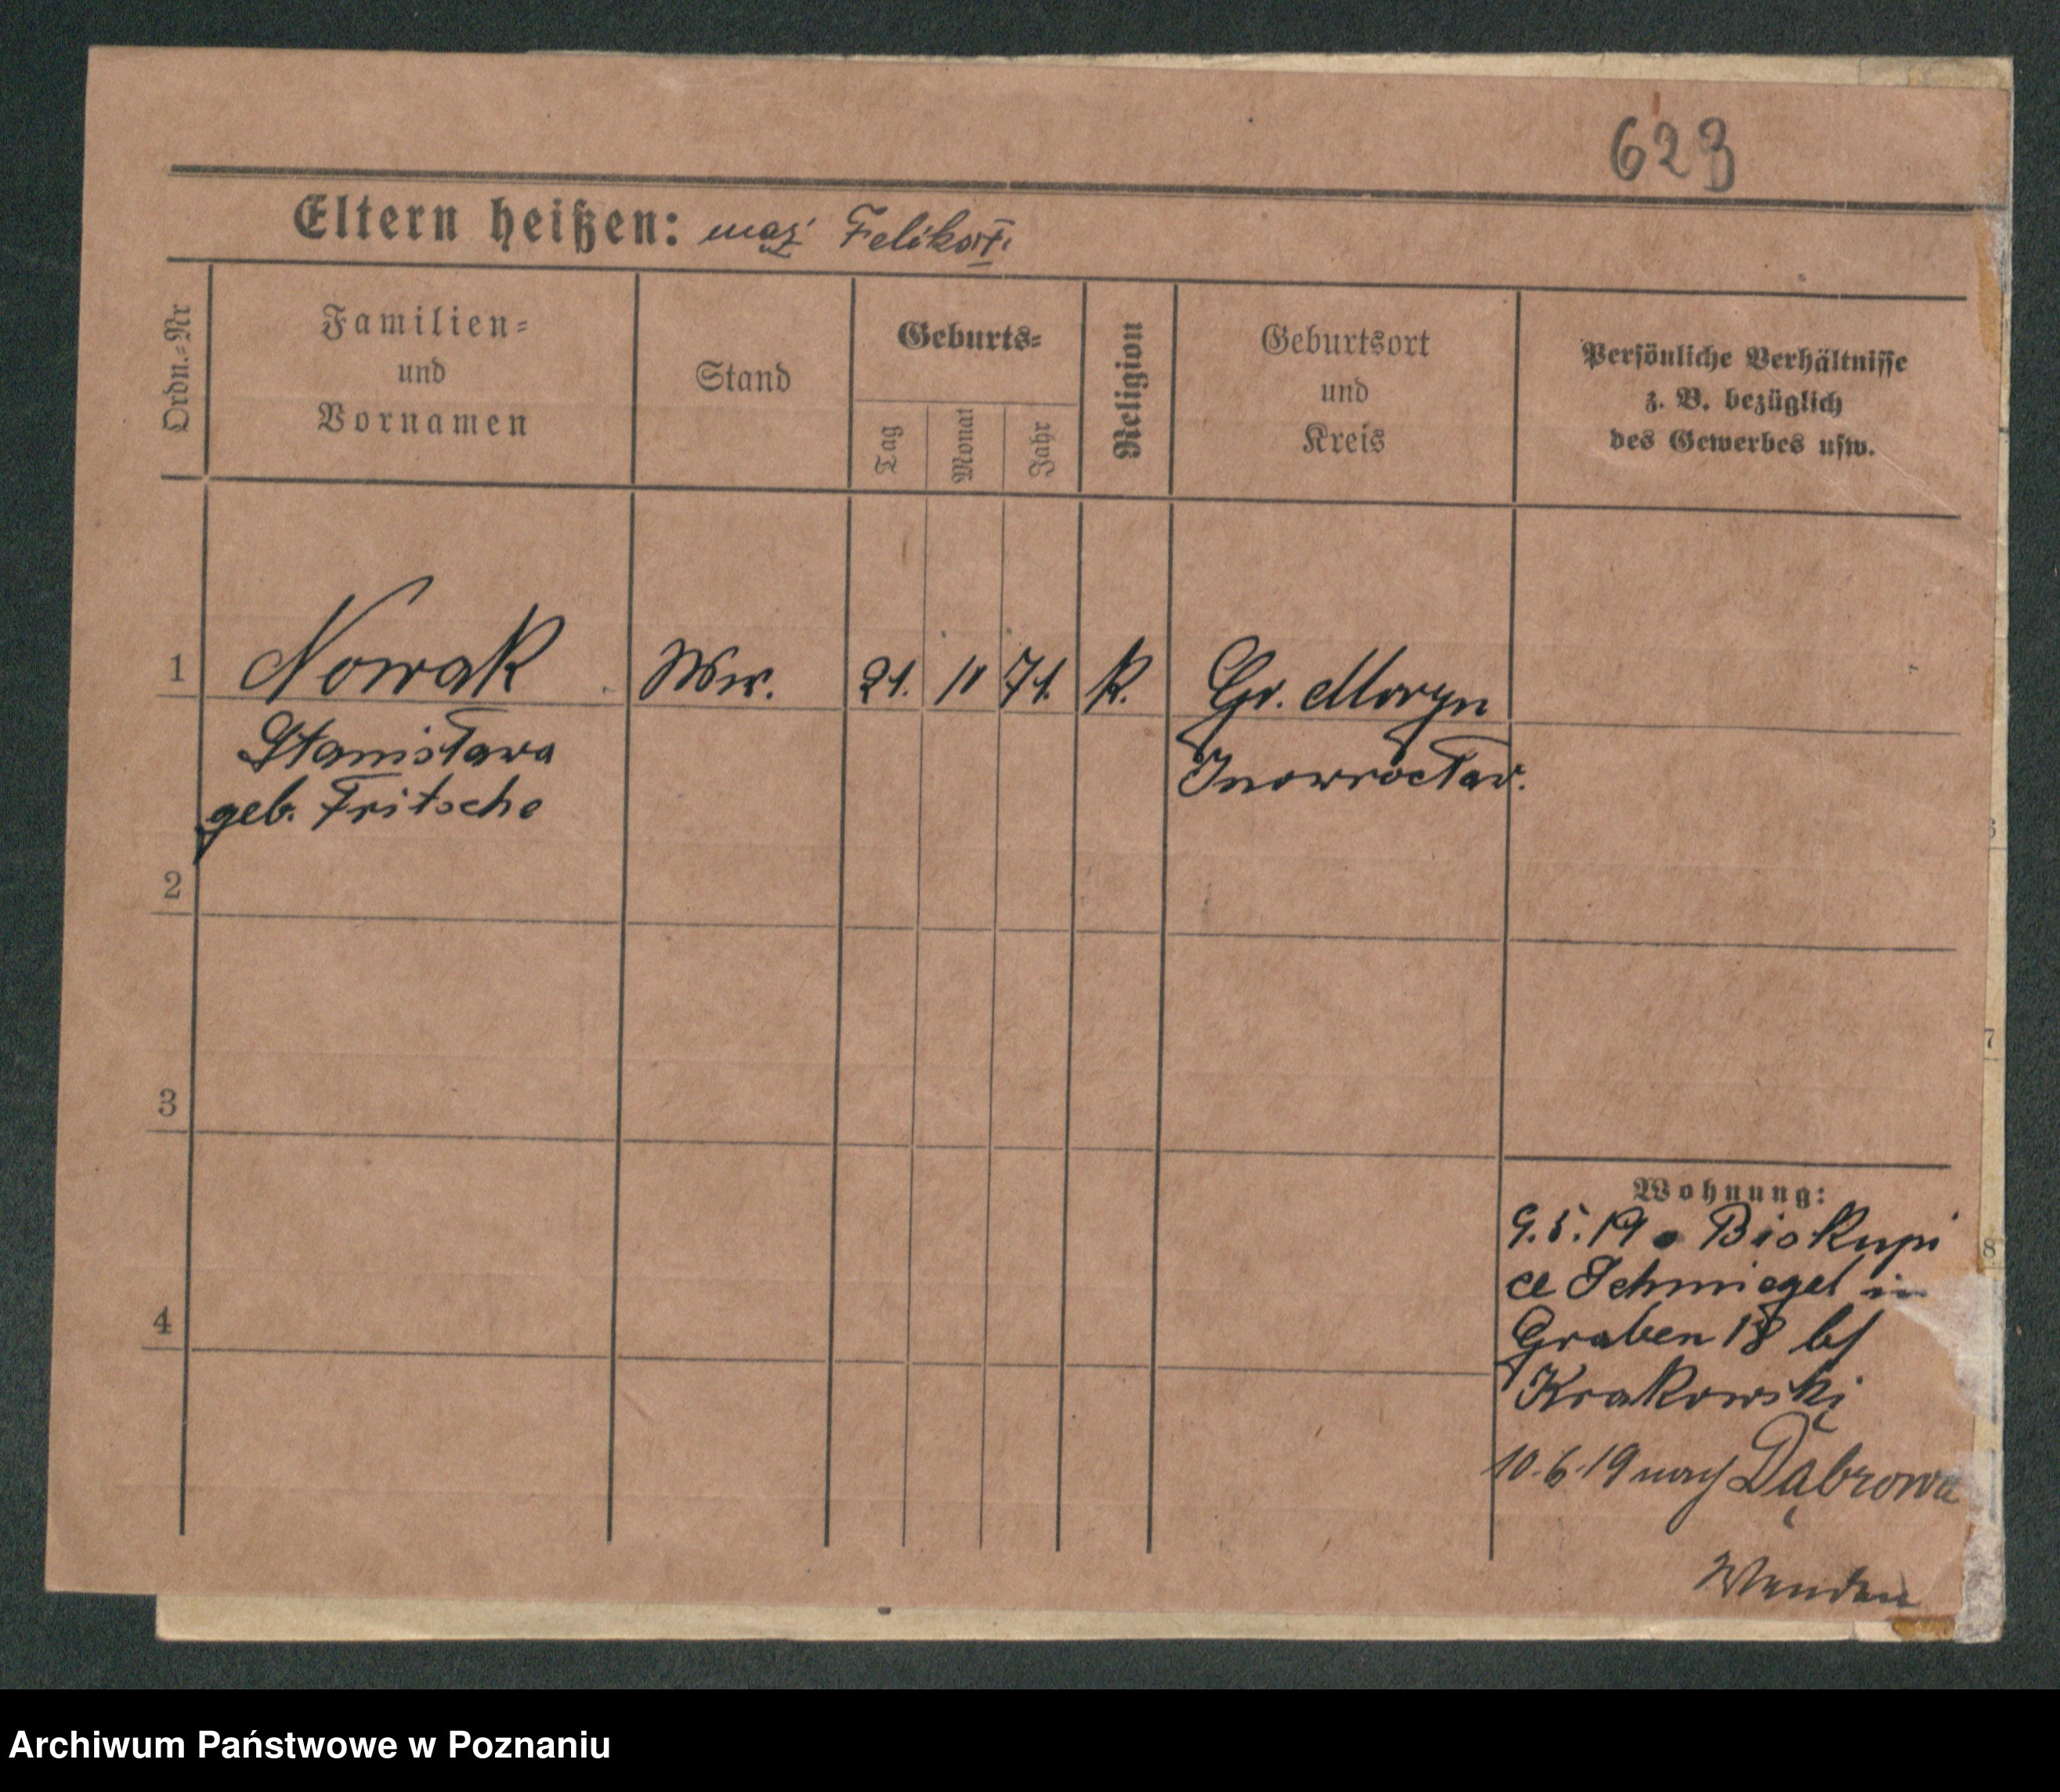 623
Eltern heißen: mąż Feliks †.
Ordn.=Nr
Familien=
und
Vornamen
Stand
Geburts=
Tag
Monat
Jahr
Religion
Geburtsort
und
Kreis
Persönliche Verhältnisse
z. B. bezüglich
des Gewerbes usw.
1 Nowak Ww. 21. 11 71. K. Gr. Moryn
Stanisława Inowrocław.
geb. Fritsche
2
3
4
Wohnung:
9.5.19. Biskupi
ce Schmiegel in
Graben 18 bf
Krakowski
10.6.19 nach Dąbrowa
6
7
8
Archiwum Państwowe w Poznaniu